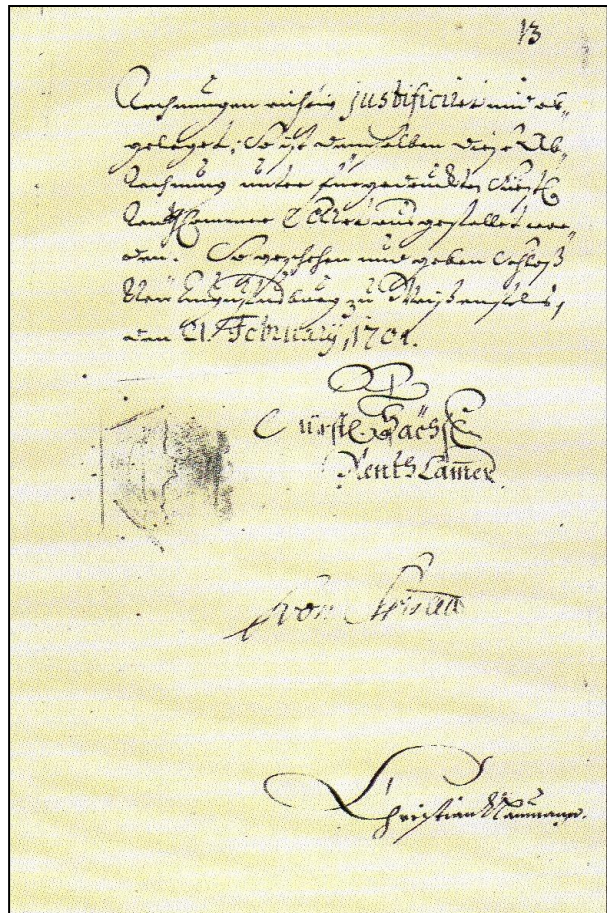 13
Rechnungen richtig justificiret und ab-
geleget; So ist demselben diese Ab-
Rechnung unter fürgedruckten Fürstl.
Renth Cammer Secret ausgestellet wor-
den. So geschehen und geben Schloß
Neu Augustusburg zu Weißenfels,
den 21. February, 1701.
Fürstl. Sächß.
Renth Camer
von
Christian Naumann.